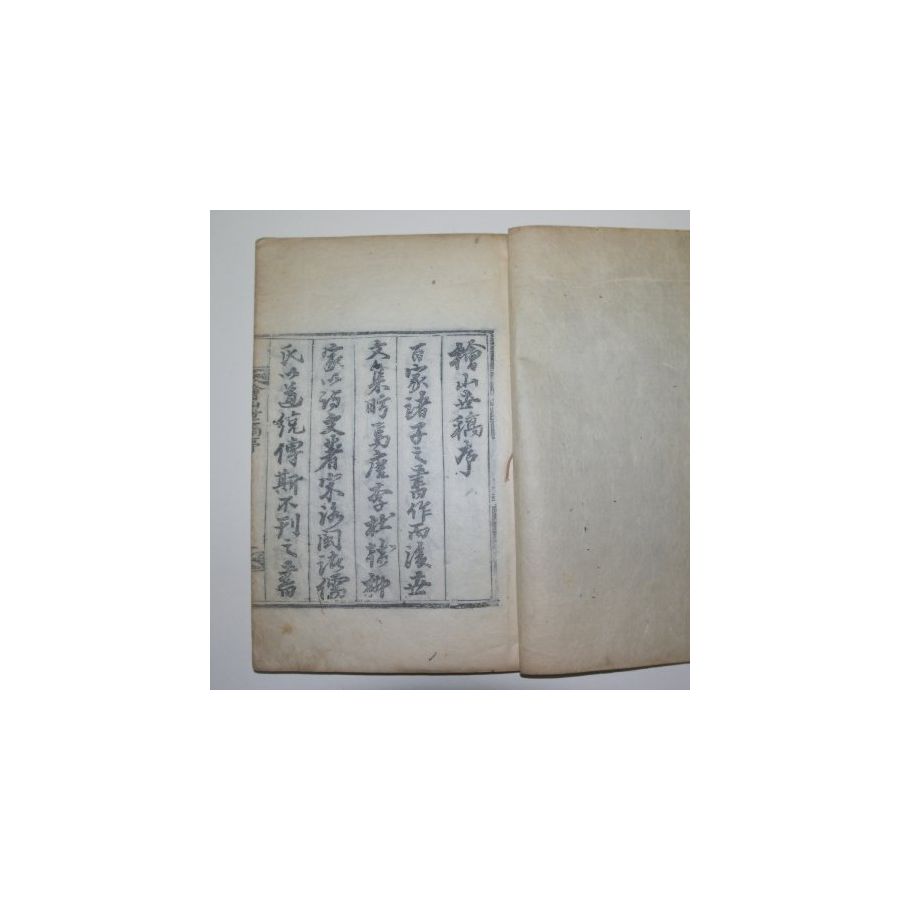 檜山世稿序
百家諸子之書作而後世
文集昉焉唐李杜韓柳
家以詩文著宋洛閩諸儒
氏以道統傳斯不刊之書
檜山世稿序